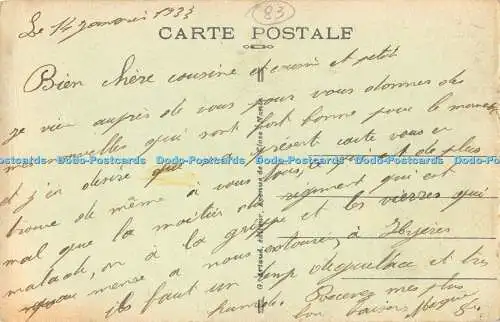 Le 14 janvier 1933
83
CARTE POSTALE
Bien chère cousine et cousin et petit
je vien auprès de vous pour vous donner de
mes nouvelles qui sont fort bonne pour le moment
et j'en désire que la présent carte vous en
trouve de même à vous tous, ce qui est de plus
mal que la moitier du régiment qui est
malade, on a la grippe et les vierres qui
à nous entourre, à Hyères
ils faut un temp dégeulasse et très
humide. Recevez mes plus
bon baisers
Dodo-Postcards Dodo-Postcards Dodo-Postcards Dodo-Postcards Dodo-Postcards Dodo-Postcards